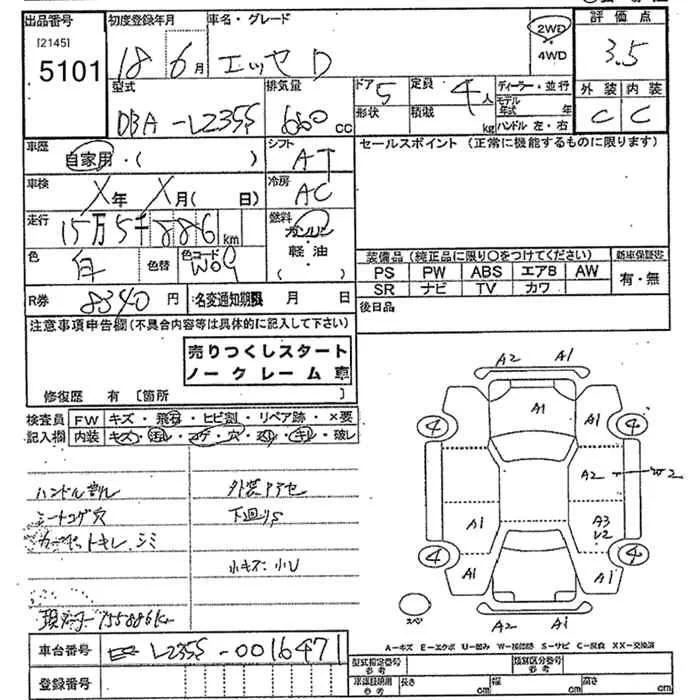 出品番号
[2145]
5101
初度登録年月
18 6月
車名・グレード
エッセ D
2WD
・
4WD
評価点
3.5
外装 内装
C C
型式
DBA-L235S
排気量
660 cc
ドア
5
形状
定員
4人
積載
kg
ディーラー・並行
モデル年式 年
ハンドル 左・右
車歴
自家用・( )
シフト
AT
セールスポイント (正常に機能するものに限ります)
車検
X年 X月( 日)
冷房
AC
走行
15万5千886 km
燃料
ガソリン
軽油
( )
色
白
色替
色コード
W09
装備品 (純正品に限り○をつけてください)
新車保証書
PS PW ABS エアB AW
有・無
SR ナビ TV カワ
R券
8340円
名変通知期限 月 日
後日品
注意事項申告欄(不具合内容等は具体的に記入して下さい)
売りつくしスタート
ノークレーム車
修復歴 有 [箇所 ]
検査員
記入欄
FW キズ・飛石・ヒビ割・リペア跡・×要
内装 キズ・汚レ・コゲ・穴・スレ・キレ・破レ
ハンドル割れ
外装アテセ
シートコゲ穴
下回りS
カーペットキレ、シミ
小キズ 小U
現メーター155886km
A2 A1
A1
A1
4 4
A2 W2
A1
A3
U2
4 4
A1
A1
A2 A1
スペ
A-キズ E-エクボ U-凹み W-補修跡 S-サビ C-腐食 XX-交換済
車台番号
L235S-0016471
登録番号
型式指定番号
参考
類別区分番号
参考
車庫証明用
参考
長さ cm
幅 cm
高さ cm